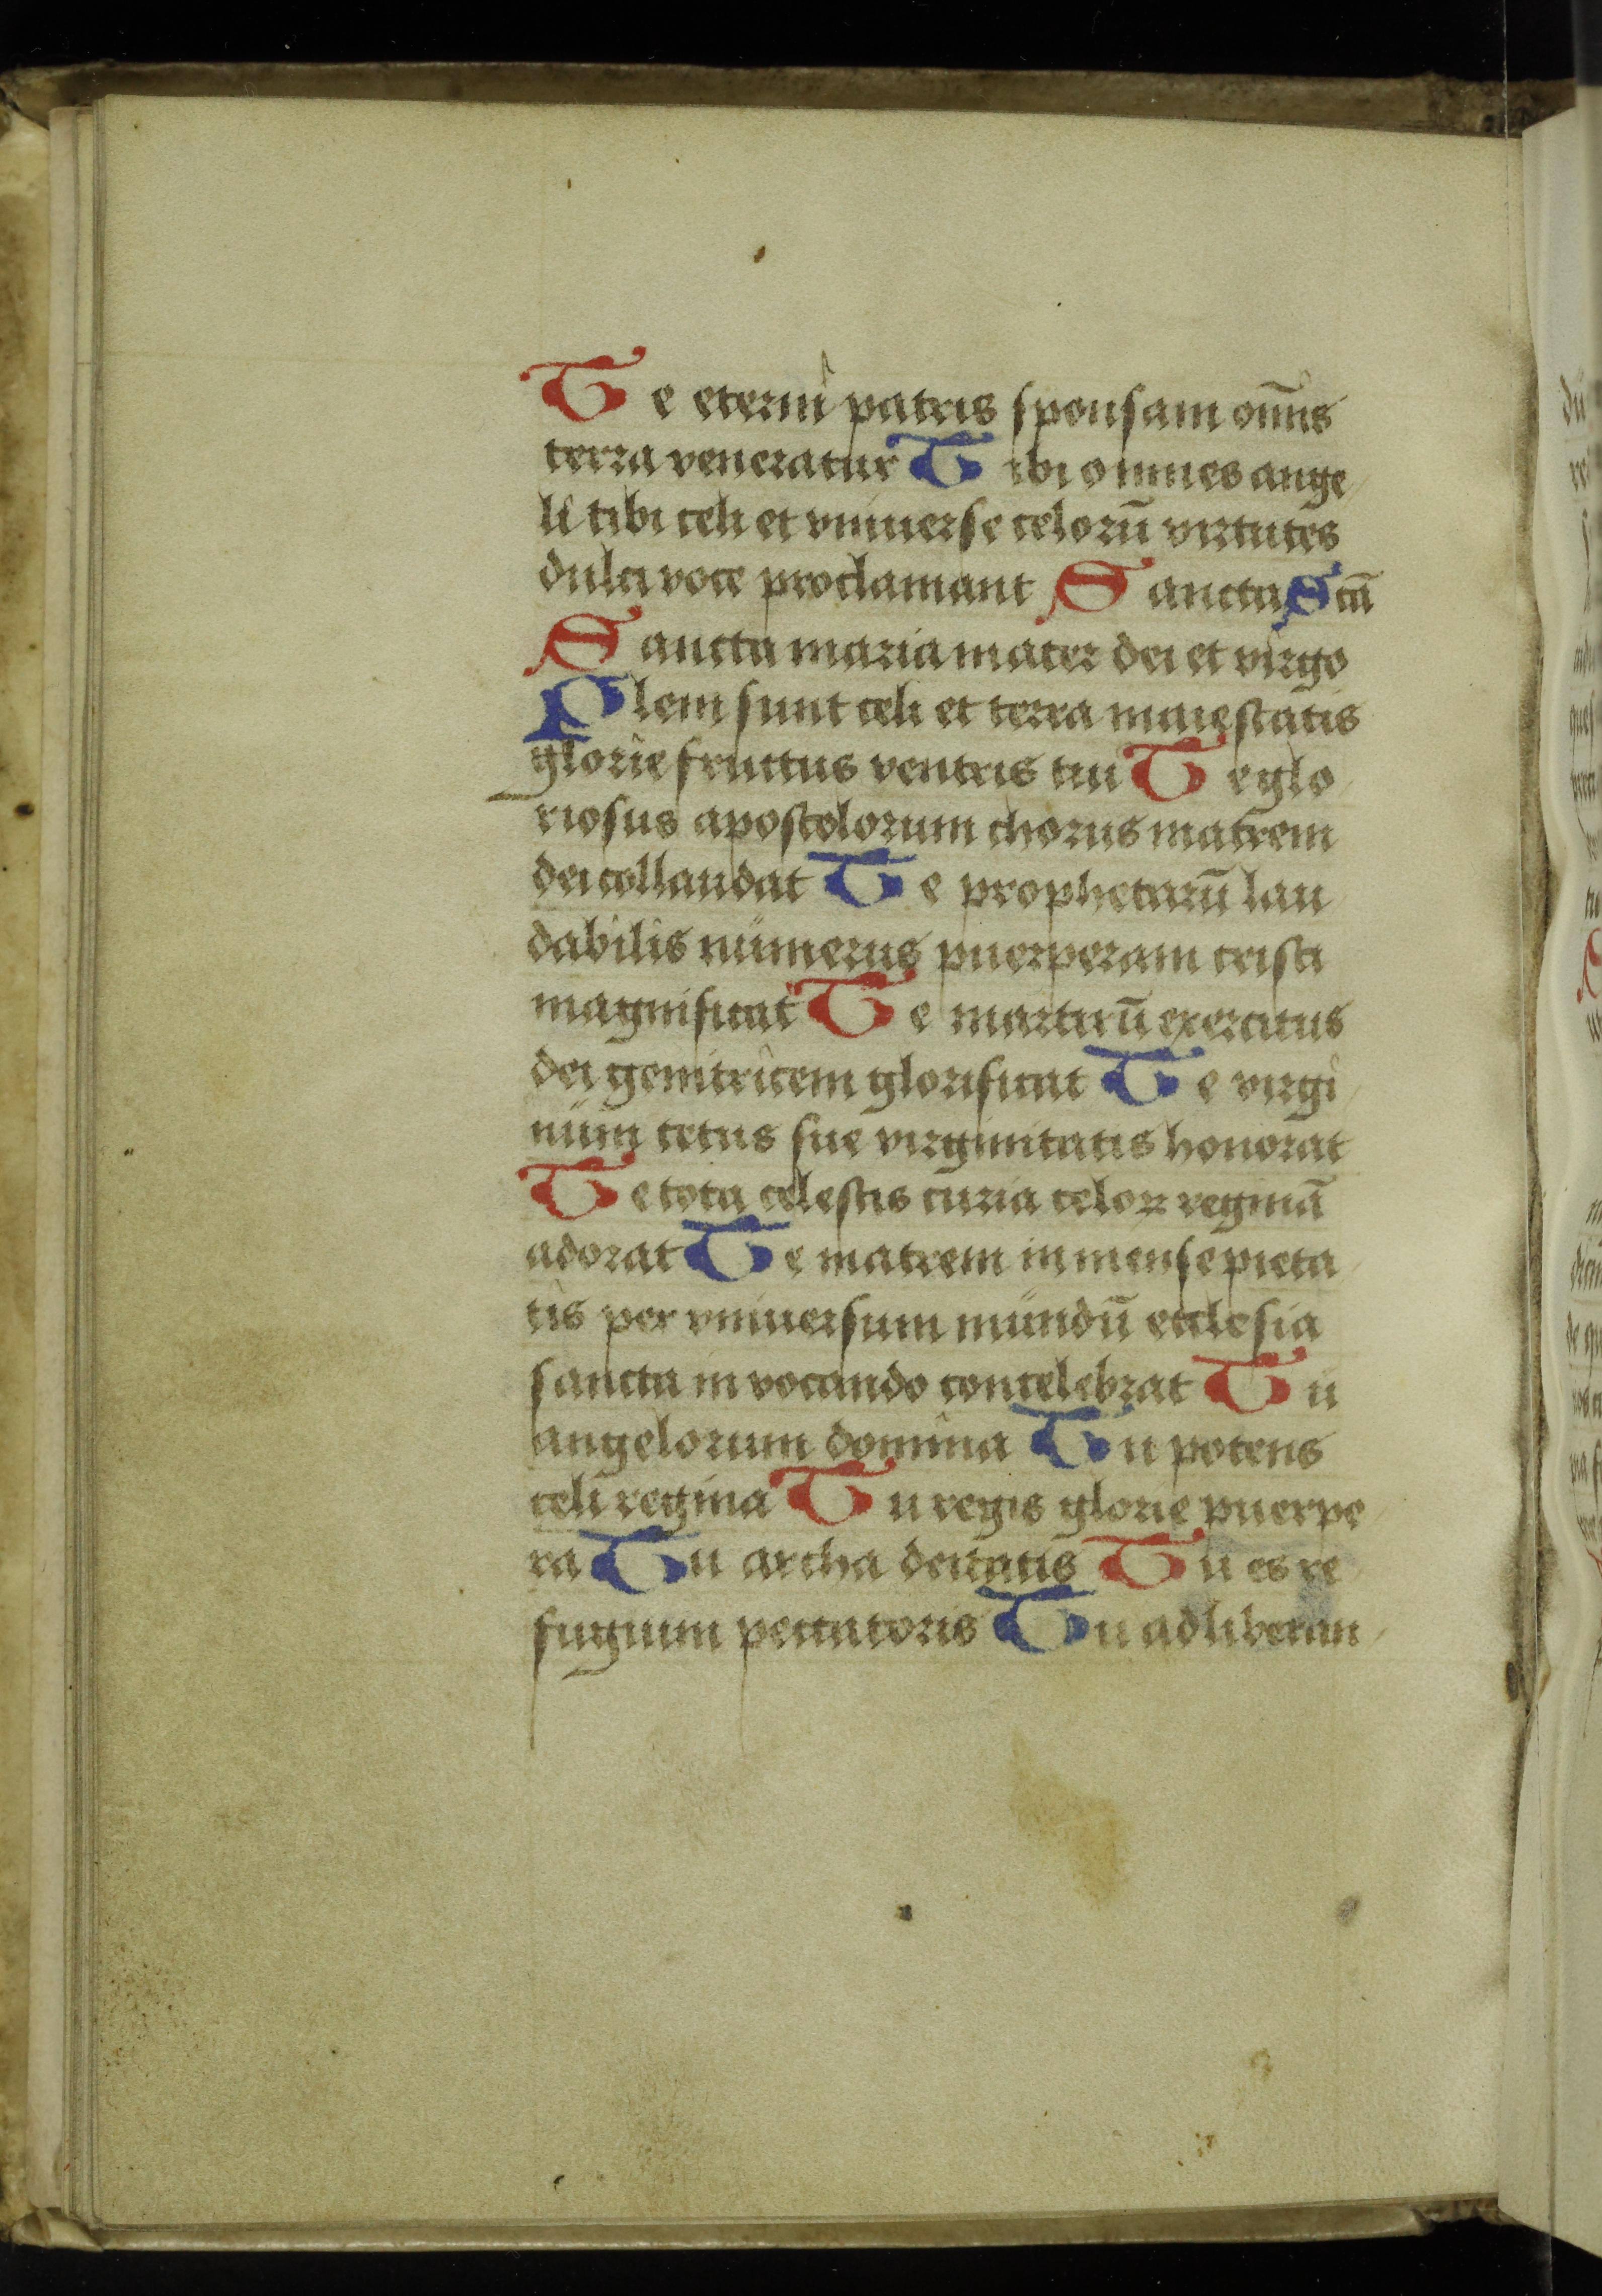 Te eterni patris sponsam om̄s
terra veneratur Tibi omnes ange
li tibi celi et vniuerse celorū virtutes
dulci voce proclamant Sancta Scā
Sancta maria mater dei et virgo
Pleni sunt celi et terra maiestatis
glorie fructus ventris tui Te glo
riosus apostolorum chorus matrem
dei collaudat Te prophetarū lau
dabilis numerus puerperam cristi
magnificat Te martirū exercitus
dei genitricem glorificat Te virgi
num cetus sue virginitatis honorat
Te tota celestis curia celoꝝ reginā
adorat Te matrem inmense pieta
tis per vniuersum mundū ecclesia
sancta invocando concelebrat Tu
angelorum domina Tu potens
celi regina Tu regis glorie puerpe
ra Tu archa deitatis Tu es re
fugium peccatoris Tu ad liberan